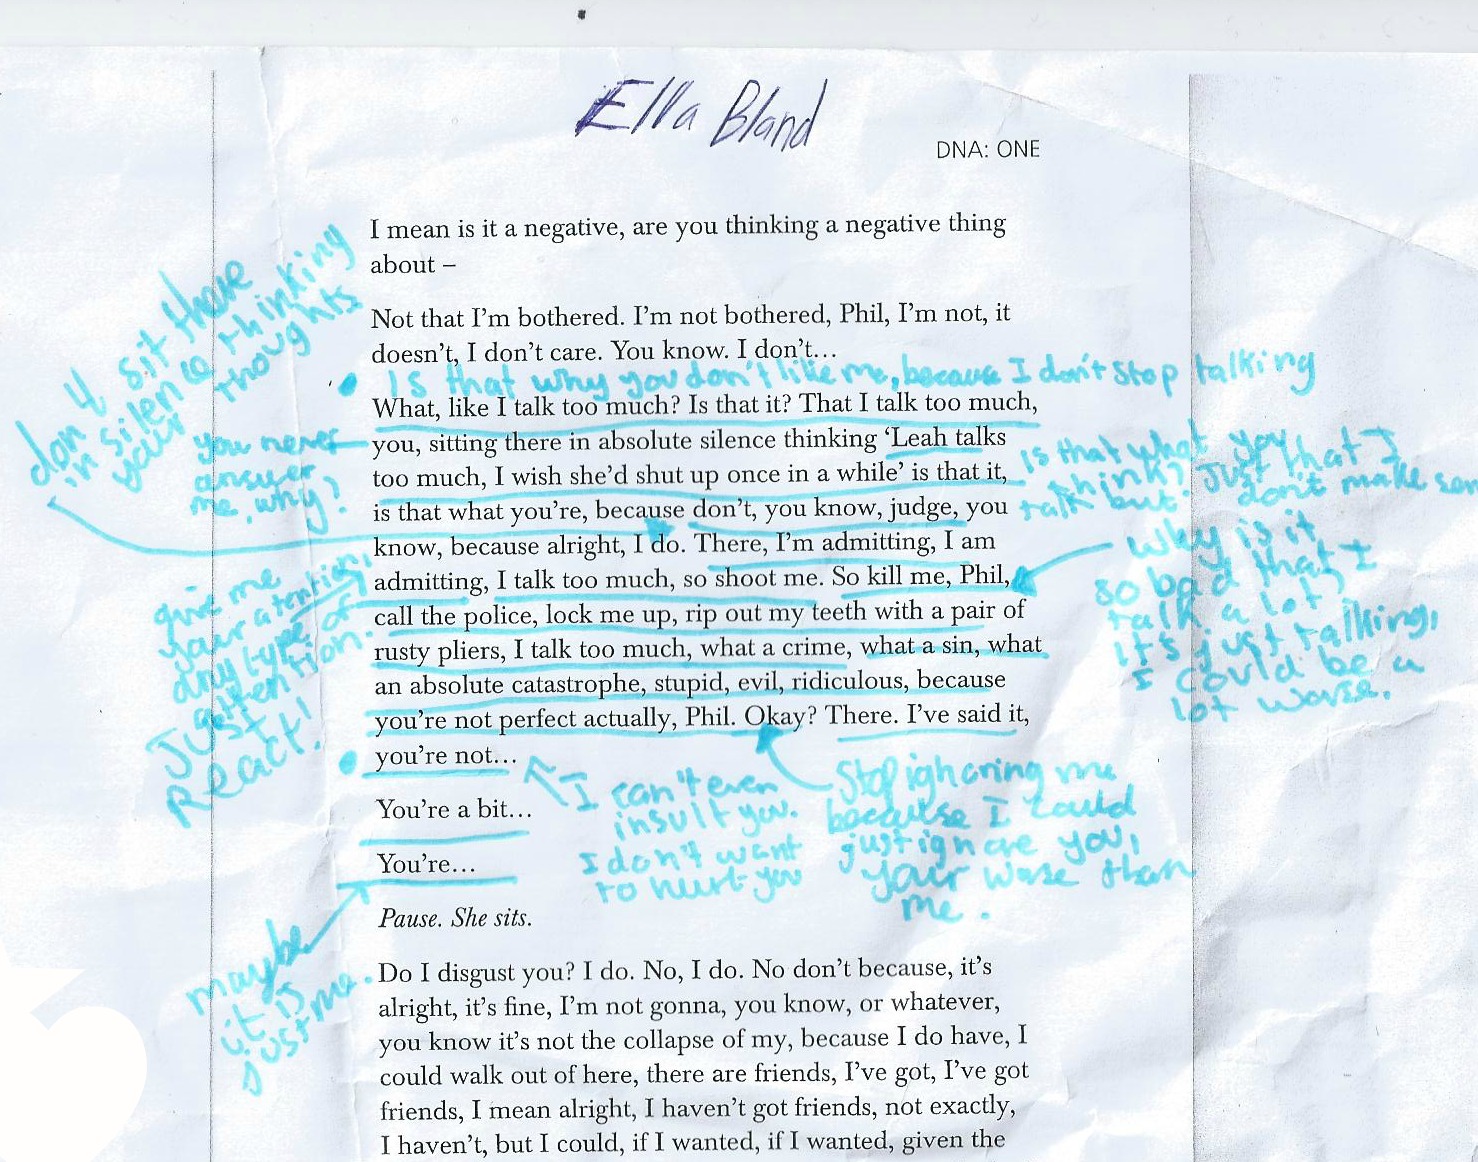 Ella Bland
DNA: ONE
I mean is it a negative, are you thinking a negative thing
about –
Not that I'm bothered. I'm not bothered, Phil, I'm not, it
doesn't, I don't care. You know. I don't…
Is that why you don't like me, because I don't stop talking
What, like I talk too much? Is that it? That I talk too much,
you, sitting there in absolute silence thinking 'Leah talks
too much, I wish she'd shut up once in a while' is that it,
is that what you're, because don't, you know, judge, you
know, because alright, I do. There, I'm admitting, I am
admitting, I talk too much, so shoot me. So kill me, Phil,
call the police, lock me up, rip out my teeth with a pair of
rusty pliers, I talk too much, what a crime, what a sin, what
an absolute catastrophe, stupid, evil, ridiculous, because
you're not perfect actually, Phil. Okay? There. I've said it,
you're not…
You're a bit…
You're…
Pause. She sits.
Do I disgust you? I do. No, I do. No don't because, it's
alright, it's fine, I'm not gonna, you know, or whatever,
you know it's not the collapse of my, because I do have, I
could walk out of here, there are friends, I've got, I've got
friends, I mean alright, I haven't got friends, not exactly,
I haven't, but I could, if I wanted, if I wanted, given the
sit there
in silence thinking
your thoughts
you never
answer
me, why?
give me
your attention,
any type of
attention.
Just
React!
maybe
it is
just me.
Is that what you
think? Just that I
talk but don't make sen
Why is it
so bad that I
talk a lot?
it's just talking,
I could be a
lot worse.
I can't even
insult you.
I don't want
to hurt you
Stop ignoring me
because I could
just ignore you,
your worse than
me.